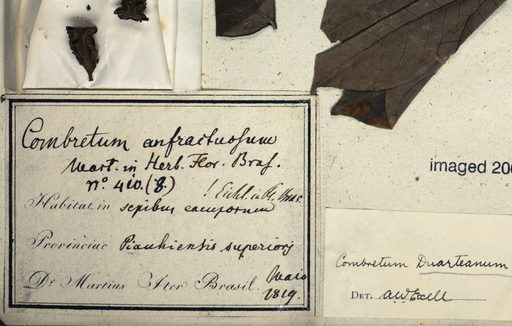 Combretum anfractuosum
Mart. in Herb. Flor. Bras.
nº 410. (8.)
! Eichl. in Fl. Bras.
Habitat in sepibus camporum
Provinciae Piauhiensis superioris
Dr. Martius Iter Brasil. Majo
1819.
imaged 200
Combretum Duarteanum
DET. A.W. Exell